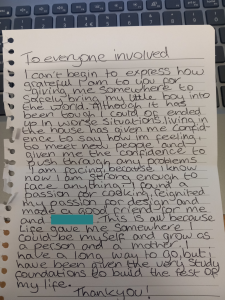 To everyone involved
I can't begin to express how
grateful I am to you for
giving me somewhere to
safely bring my little boy into
the world. Although it has
been tough I could of ended
up in worse situations, living in
the house has given me confid-
ence to say how im feeling,
to meet new people and
given me the confidence to
push through any problems
I am facing because I know
now I am strong enough to
face anything. I found a
passion for cooking, reignited
my passion for design and
made a good friend for me
and This is all because
Life gave me somewhere I
could be myself and grow as
a person and a mother. I
have a long way to go, but I
have been given the very study
foundations to build the rest of
my life.
Thankyou!